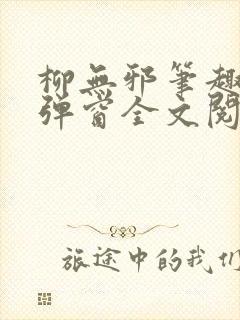 柳無邪筆趣
彈窗全文閱
旅途中的我们